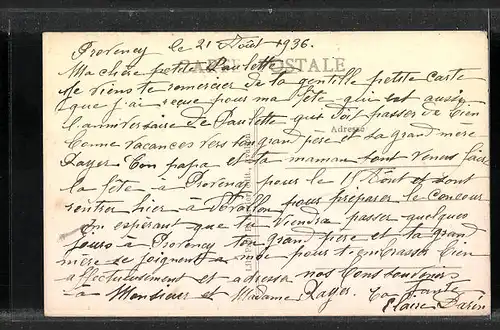 Provency le 21 Août 1936.
CARTE POSTALE
Ma chère petite Paulette
Je viens te remercier de la gentille petite carte
que j'ai reçue pour ma fête qui est aussi
l'anniversaire de Paulette qui doit passer de bien
Adresse
bonne vacances vers ton grand père et sa grand mère
Layer. Ton papa et ta maman sont venus faire
la fête à Provency pour le 15 Août et sont
rentrer hier à pour préparer le concour
En espérant que tu viendra passer quelques
jours à Provency ton grand père et ta grand
mère se joignent à moi pour t'embrasser bien
affectueusement et adresse nos bons souvenirs
à Monsieur et Madame Layer. Ta tante
Claire